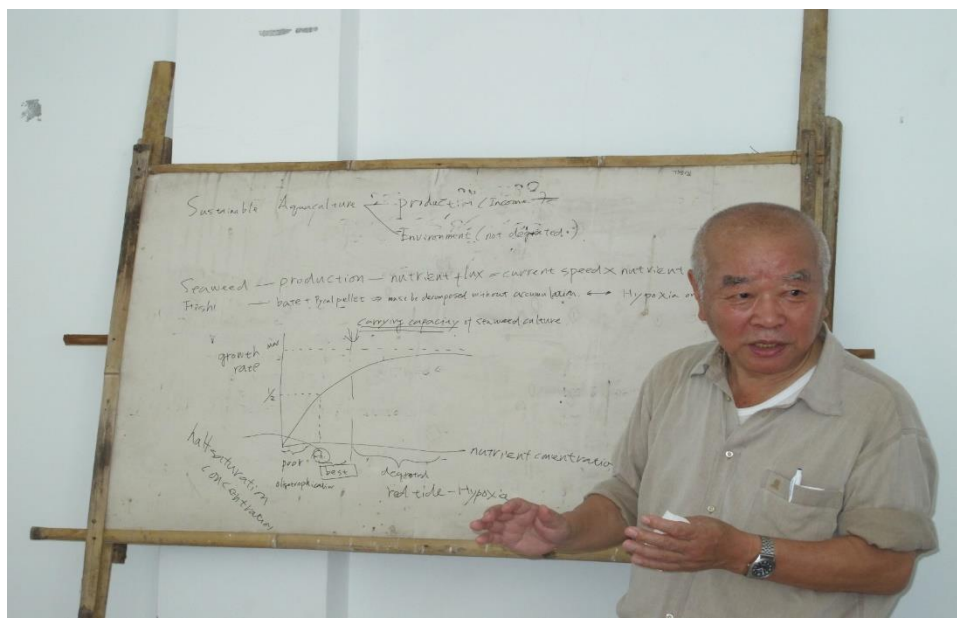 Sustainable Aquaculture production (Income
Environment (not degraded.)
Seaweed — production — nutrient flux = current speed × nutrient
— must be decomposed without accumulation. ↔ Hypoxia
Carrying capacity of seaweed culture
growth
rate
max
1/2
nutrient concentration
poor
oligotrophication
best
degraed
red tide - Hypoxia
Half saturation
concentration